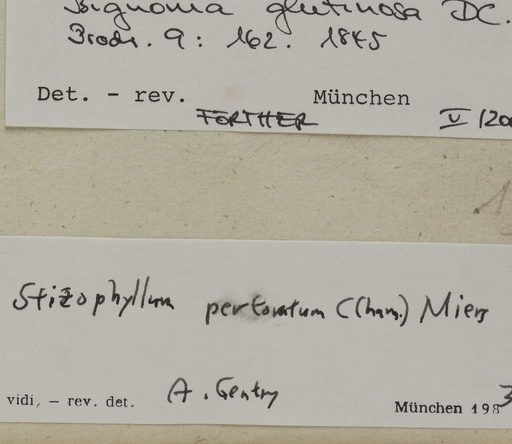 Bignonia glutinosa DC.
Prodr. 9: 162. 1845
Det. - rev. München
FÖRTHER V/200
Stizophyllum perforatum (Cham.) Miers
vidi, – rev. det. A. Gentry München 1983